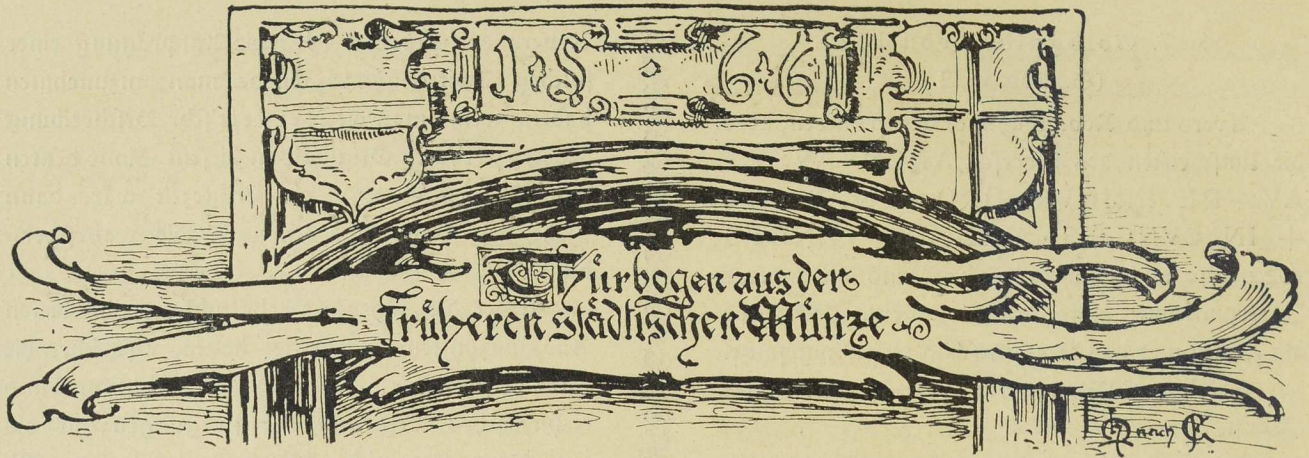 15 66
Thürbogen aus der
früheren städtischen Münze
nach